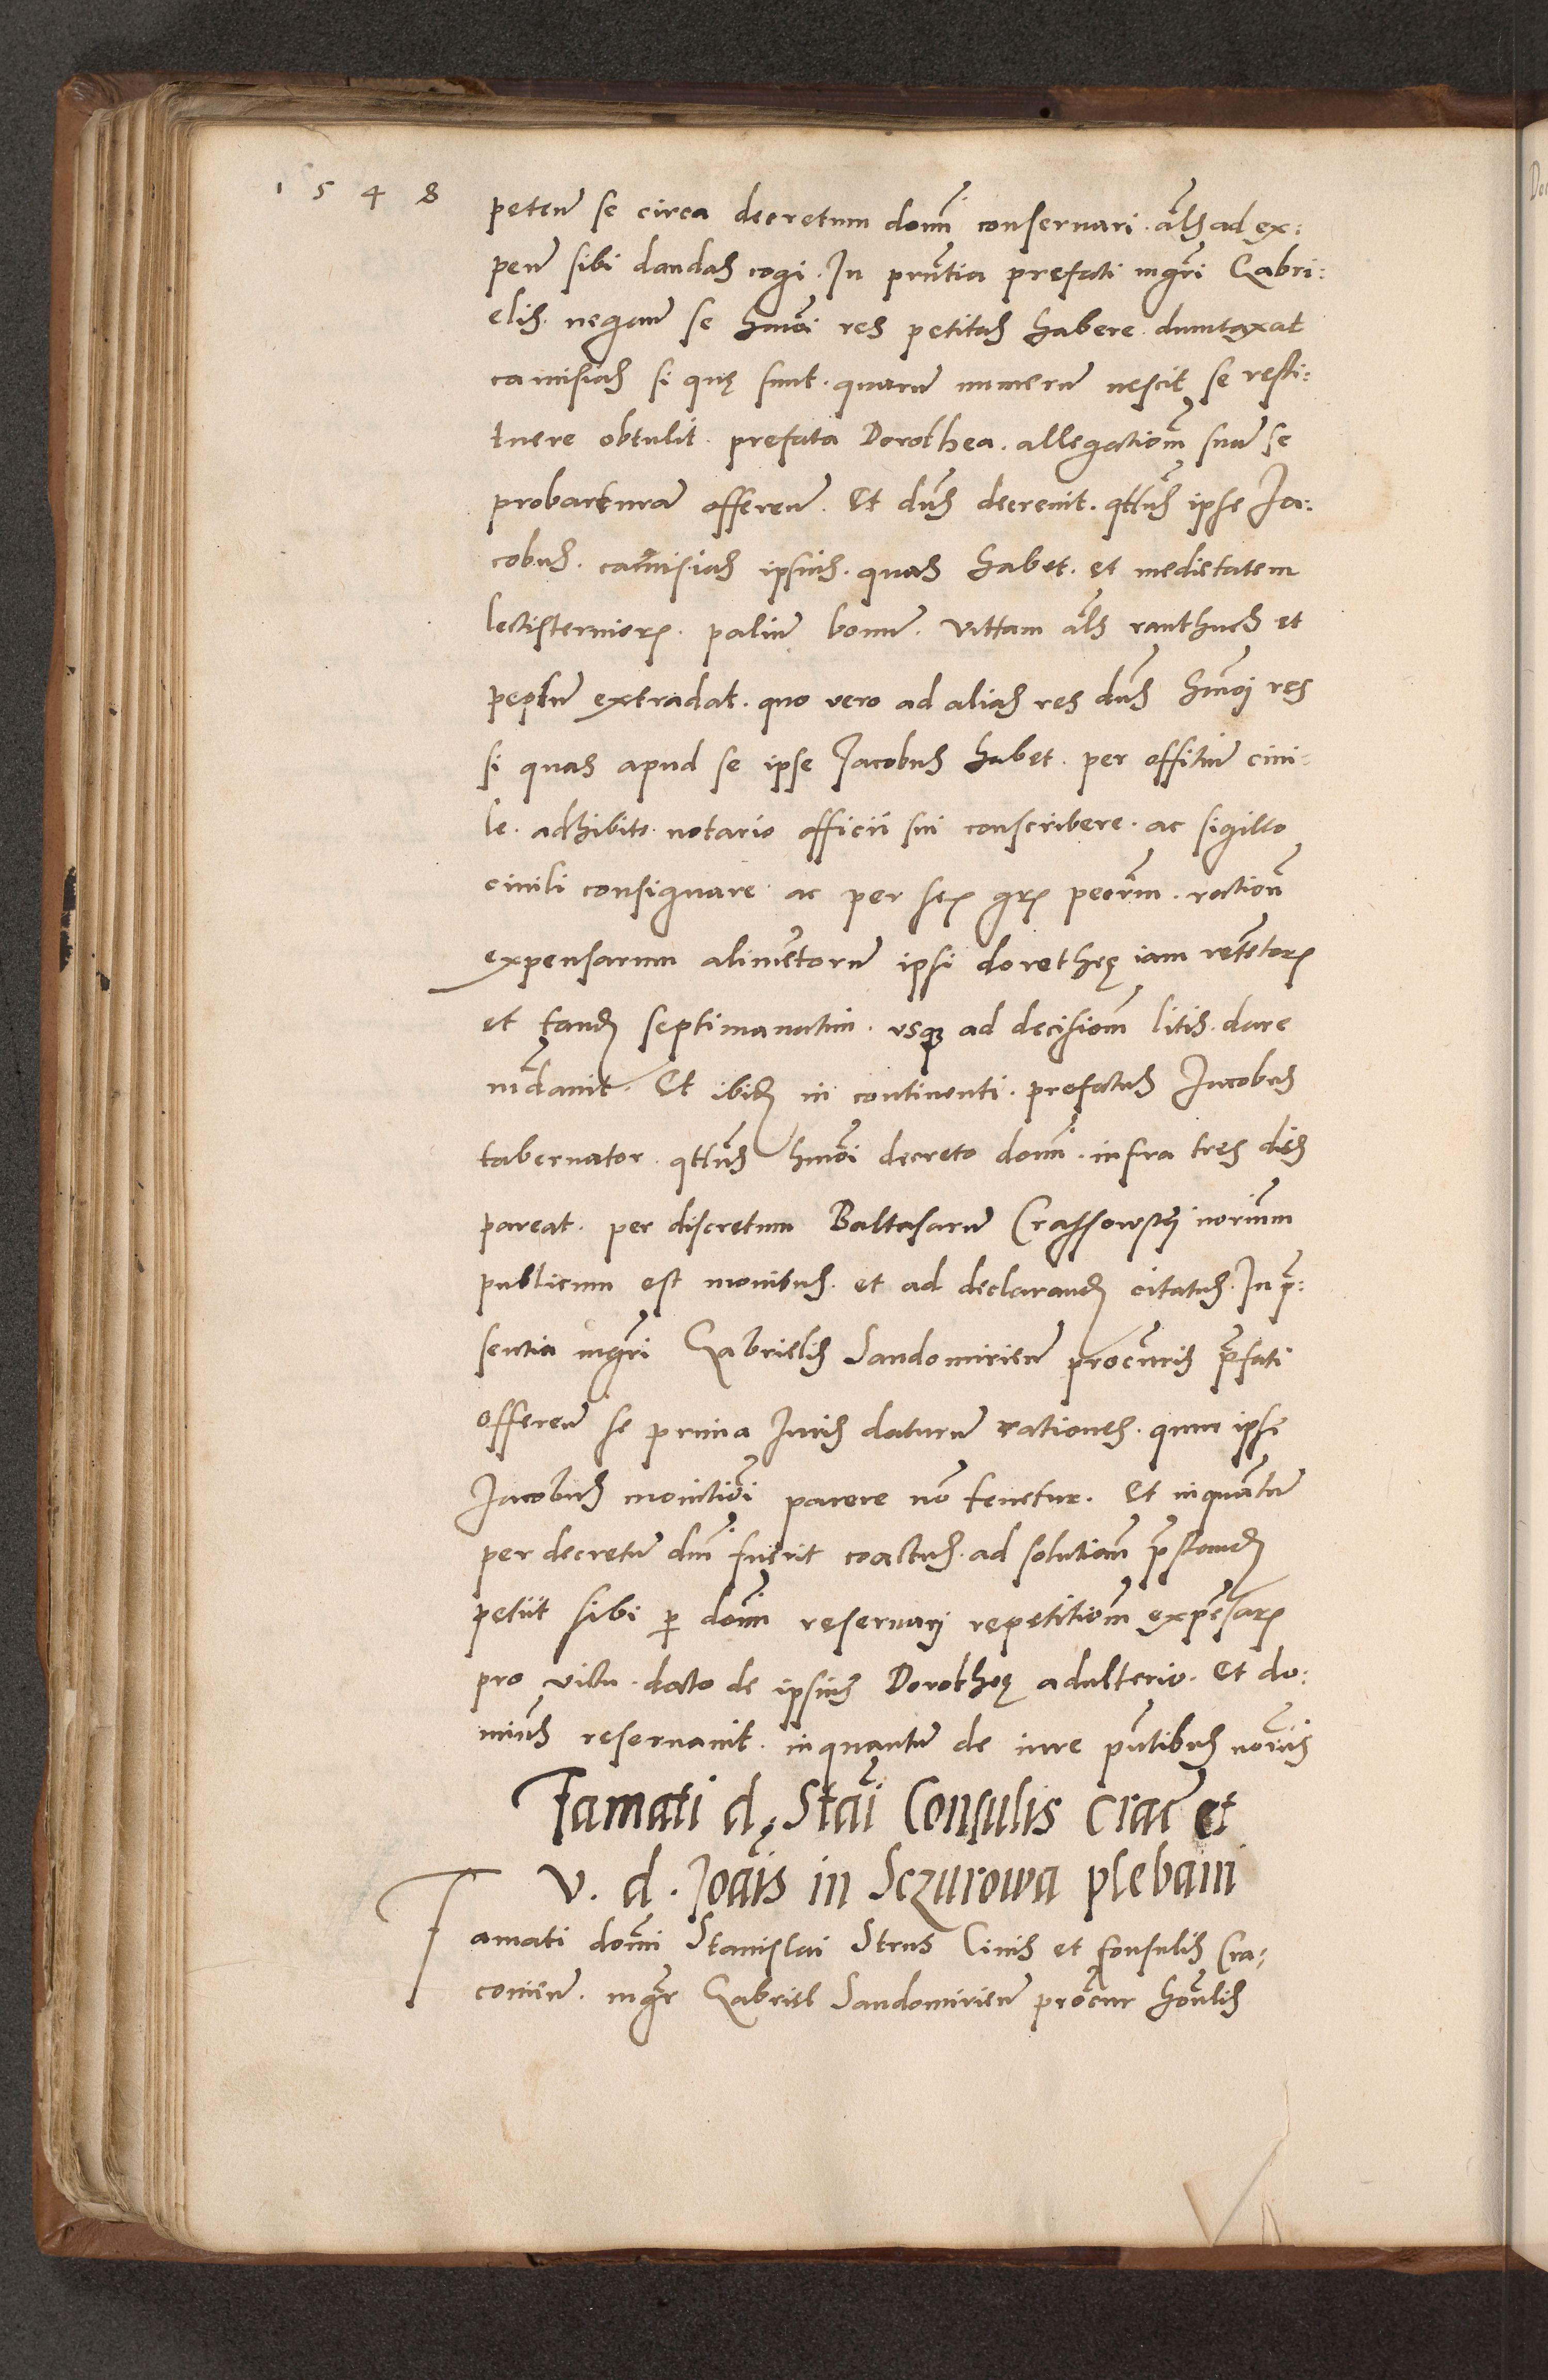 1 5 4 8
peten̄ se circa decretum domī conseruari. al̄s ad ex:
pen̄ sibi dandas cogi. In pn̄tia prefati mgr̄i Gabri:
elis. negan̄ se hmōi res petitas habere dumtaxat
camisias si quę sunt. quarū numerū nescit se resti:
tuere obtulit. prefata Dorothea. allegationem̄ suā se
probarturā offeren̄. Et dn̄s decreuit. qtn̄s ipse Ja:
cobus. camisias ipsius. quas habet. et medietatem
lectisternioꝝ. paliū bonū. vittam al̄s ranthuch et
peplū extradat. quo vero ad alias res dn̄s hmōi res
si quas apud se ipse Jacobus habet. per offitiū ciui:
le. adhibito. notario officii sui conscribere. ac sigillo
ciuili consignare. ac per sex gꝝ pecn̄m. rationē
expensarum alimētorū ipsi dorotheę iam retētoꝝ
et tandē septimanatim. vsqꝫ ad decisionē litis. dare
mādauit. Et ibidē in continenti. prefatus Jacobus
tabernator. qtn̄s hmōi decreto domī. infra tres dies
pareat. per discretum Baltasarū Crassowski notm̄
publicum est monitus. et ad declarandū citatus. In p̄:
sentia mgr̄i Gabrielis Sandomirien̄ procur̄is p̄fati
offeren̄ se prima Juris daturū rationes. qum ipse
Jacobus monitiōi parere nō tenetur. Et inquantū
per decretū dnī fuerit coactus. ad solutionē p̄standā
petiit sibi p̄ domī reseruarj repetitionē expēsaꝝ
pro victu. dacto de ipsius Dorotheę adulterio. Et do:
minus reseruauit. inquantū de iure pn̄tibus notr̄iis
Famati d. Stāi Consulis Crac̄ et
v. d. Joāis in Sczurowa plebani
Famati domī Stanislai Strus Ciuis et Consulis Cra:
couien̄. mgr̄ Gabriel Sandomirien̄ procur̄ hon̄lis